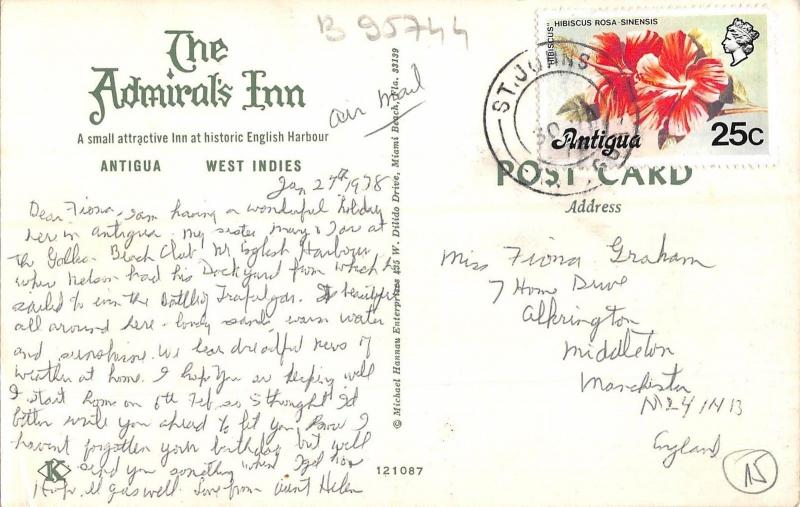 B 95744
The
Admiral's Inn
A small attractive Inn at historic English Harbour
ANTIGUA WEST INDIES
air mail
Jan 27th 1978
Dear Fiona, I am having a wonderful holiday
here in Antigua. My sister Mary & I are at
The Galleon Beach Club Nr English Harbour
where Nelson had his Dockyard from which he
sailed to win the Battle of Trafalgar. Its beautiful
all around here - lovely sands, warm water
and sunshine. We hear dreadful news of
weather at home. I hope you are keeping well
I start home on 6th Feb so I thought I'd
better write you ahead to let you know I
havent forgotten your birthday but will
send you something when I get home
Hope all goes well. Love from Aunt Helen
K
© Michael Hannau Enterprises 435 W. Dilido Drive, Miami Beach, Fla. 33139
121087
"HIBISCUS" HIBISCUS ROSA-SINENSIS
Antigua 25c
ST. JOHNS
30
POST CARD
Address
Miss Fiona Graham
7 Home Drive
Alkrington
Middleton
Manchester
M24 1NB
England
15